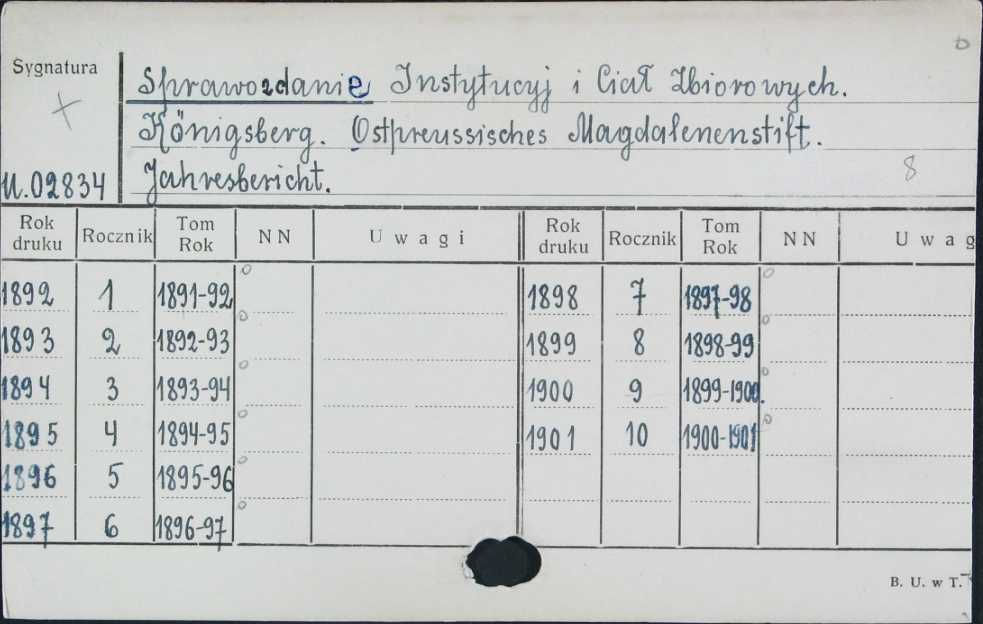 Sygnatura
Sprawozdanie Instytucyj i Ciał Zbiorowych.
Königsberg. Ostpreussisches Magdalenenstift.
8
U.02834 Jahresbericht.
Rok druku Rocznik Tom Rok NN Uwagi Rok druku Rocznik Tom Rok NN Uwag
1892 1 1891-92 1898 7 1897-98
1893 2 1892-93 1899 8 1898-99
1894 3 1893-94 1900 9 1899-1900.
1895 4 1894-95 1901 10 1900-1901
1896 5 1895-96
1897 6 1896-97
B. U. w T.